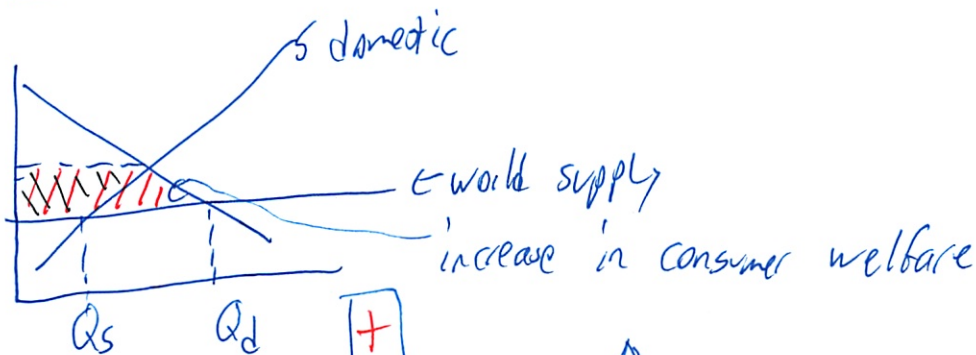 S domestic
← world supply
increase in consumer welfare
Qs Qd +